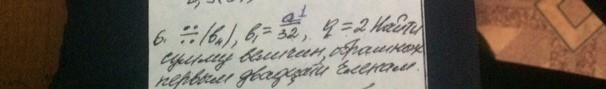 6. ÷÷(bₙ), b₁ = 1/32, q = 2 Найти
сумму величин, обратных
первым двадцати членам.